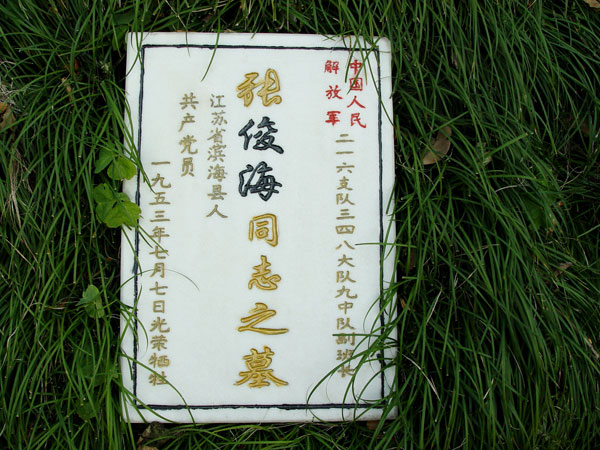 中国人民
解放军
二一六支队三四八大队九中队副班长
张俊海同志之墓
江苏省滨海县人
共产党员
一九五三年七月七日光荣牺牲